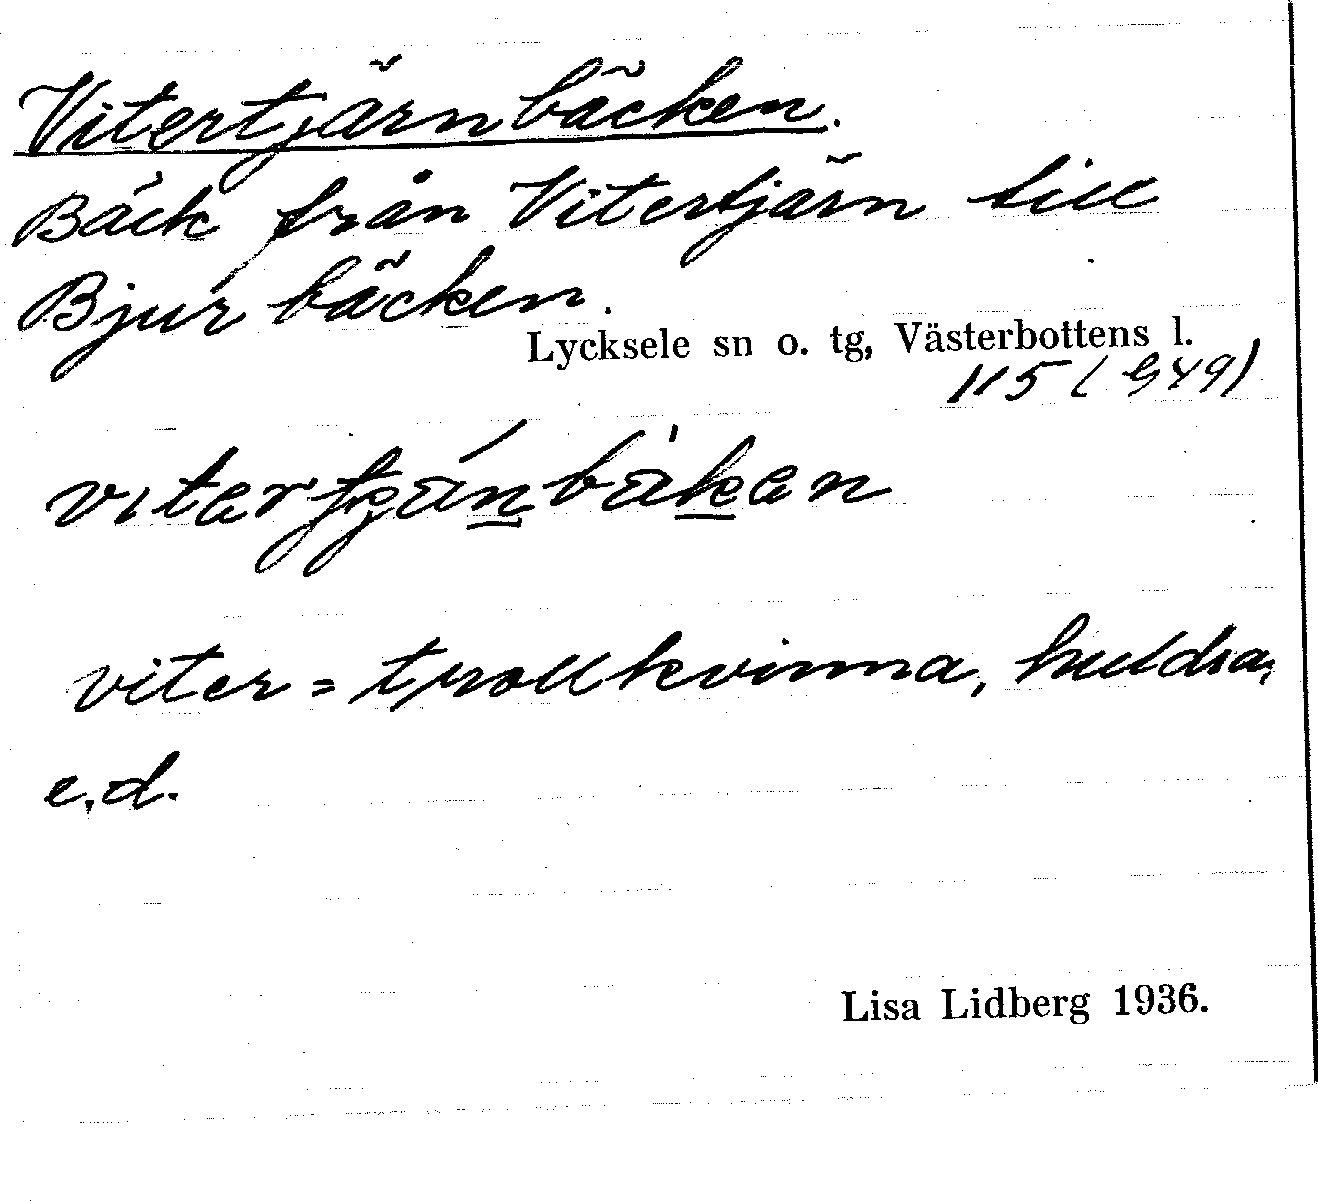 Vitertjärnbäcken.
Bäck från Vitertjärn till
Bjurbäcken.
Lycksele sn o. tg, Västerbottens l.
115 (949)
viter = trollkvinna, huldra,
e.d.
Lisa Lidberg 1936.